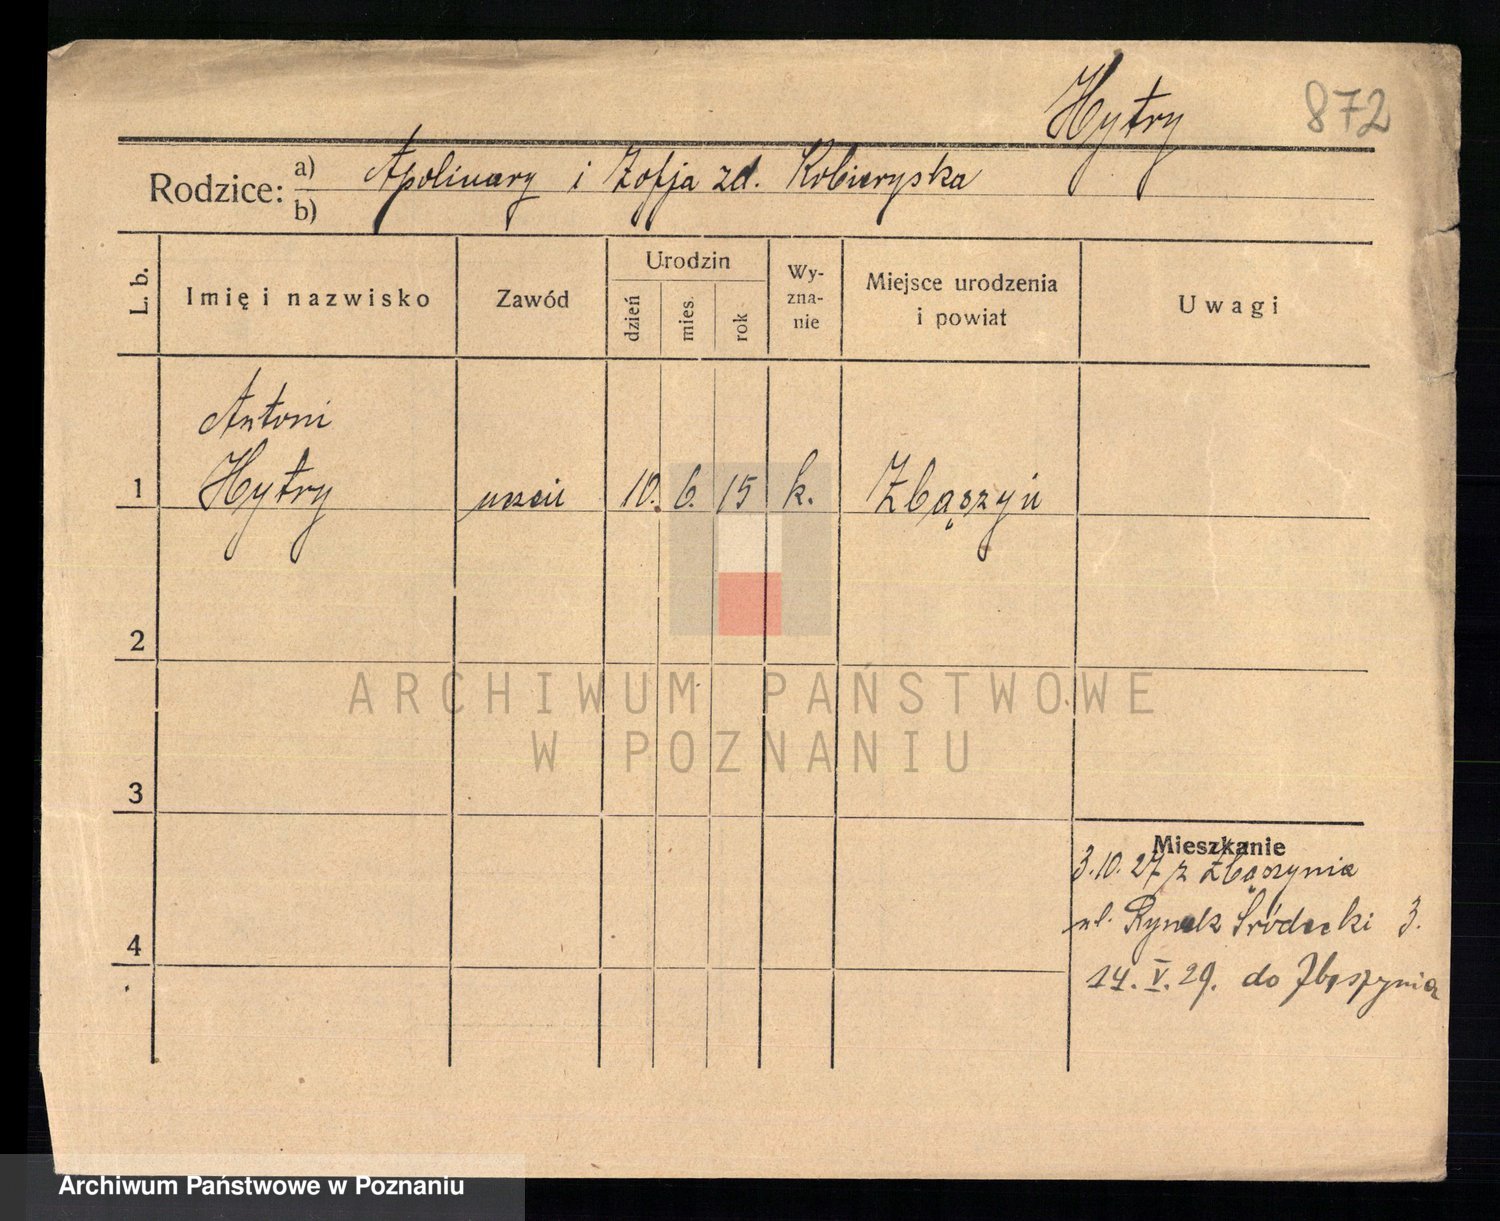 Hytry 872
Rodzice: a) Apolinary i Zofja zd. Kobieryska
b)
L. b. Imię i nazwisko Zawód Urodzin Wy-zna-nie Miejsce urodzenia i powiat Uwagi
dzień mies. rok
Antoni
1 Hytry uczeń 10. 6. 15 k. Zbąszyń
2
ARCHIWUM PAŃSTWOWE
W POZNANIU
3
Mieszkanie
3.10.27 z Zbąszynia
ul. Rynek Śródecki 3.
4
14. V. 29. do Zbąszynia
Archiwum Państwowe w Poznaniu